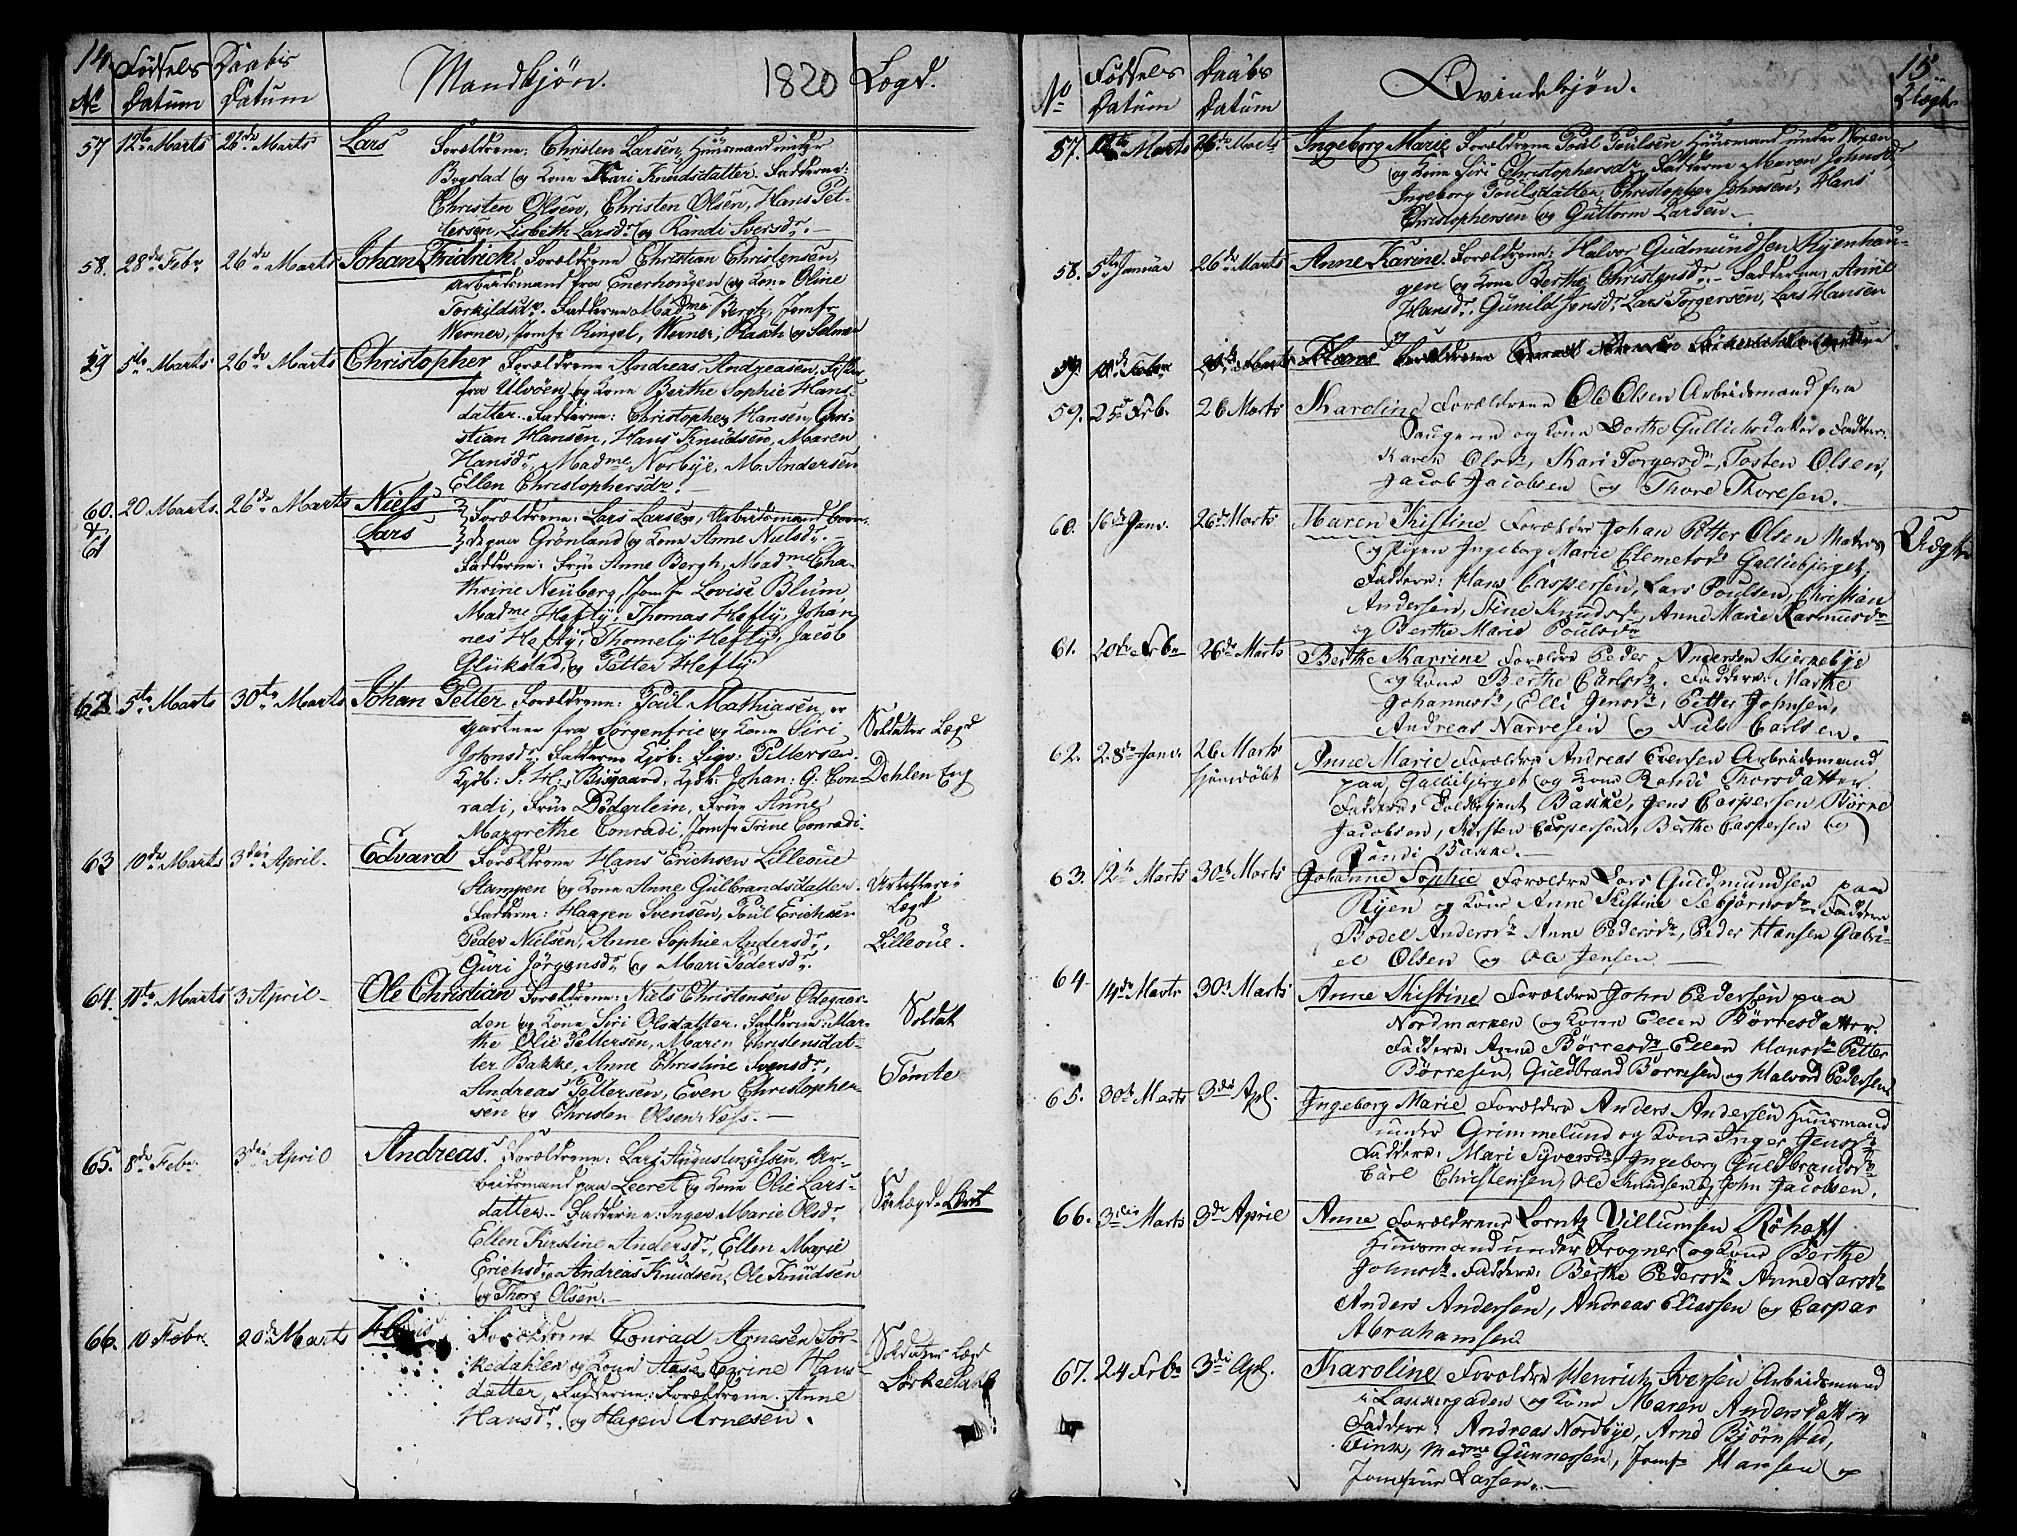 14.
Fødsels Daabs Mandkjøn. 1820 Lægd.
No Datum Datum
57 12te Marts 26de Marts Lars Forældrene: Christen Larsen, Huusmand under
Bogstad og Kone Kari Knudsdatter. Fadderne:
Christen Olsen, Christen Olsen, Hans Pet-
tersen, Lisbeth Larsdr og Randi Iversdr. —
58. 28de Febr 26de Marts Johan Fridrich. Forældrene Christian Christensen,
Arbeidsmand fra Enerhougen og Kone Oline
Torkildsdr. Fadderne Madme Bergh, Jomfr
Werner, Jomfr Ringel, Werner, Rasch og Salmer
59 5te Marts 26de Marts Christopher Forældrene Andreas Andreasen, Fisker
fra Ulvøen og Kone Berthe Sophie Hans-
datter. Fadderne: Christopher Hansen, Chri-
stian Hansen, Hans Knudsen, Maren
Hansdr, Madme Norbye, M. Andersen
Ellen Christophersdr. —
60. 20 Marts. 26de Marts Niels Forældrene: Lars Larsen, Arbeidsmand boen-
& 61 Lars de paa Grønland og Kone Anne Nielsdr. —
Fadderne: Frue Anne Bergh, Madme Cha-
thrine Neuberg, Jomfr Lovise Blum,
Madme Hefty, Thomas Hefty, Johan-
nes Hefty, Thomely Hefty, Jacob
Glükstad, og Petter Hefty
62 5te Marts 30te Marts Johan Petter Forældrene: Poul Mathiasen, er
Gartner fra Sorgenfrie og Kone Siri Soldater Lægd
Johnsdr. Fadderne Kjøb: Sigv: Pettersen.
Kjøb: J. H. Bisgaard, Kjøb: Johan: G. Con- Dehlen Eng
radi, Frue Döderlein, Frue Anne
Margrethe Conradi, Jomfr Trine Conradi.
63 10de Marts 3die April. Edvard Forældrene Hans Erichsen Lilleoue
Stampen og Kone Anne Gulbrandsdatter. Artilleri-
Fadderne: Haagen Svensen, Poul Erichsen Lægd
Peder Nielsen, Anne Sophie Andersdr, Lilleoue.
Guri Jörgensdr, og Mari Pedersdr.
64. 11te Marts 3 April Ole Christian Forældrene: Niels Christensen Ødegaar-
den og Kone Siri Olsdatter. Fadderne: Mar- Soldat
the Olie Pettersen, Maren Christensdat-
ter Bakke, Anne Christine Svensdr, Tømte
Andreas Pettersen, Even Christopher-
sen og Christen Olsen Væss. —
65. 8de Febr. 3die April Andreas. Forældrene: Lars Augustinussen. Ar-
beidsmand paa Leeret og Kone Olie Lars-
datter. Fadderne: Inger Marie Olsdr. Søelægd Leret
Ellen Kirstine Andersdr, Ellen Marie
Erichsdr, Andreas Knudsen, Ole Knudsen
og Thore Olsen. —
66. 10 Febr. 20de Marts Hans Forældrene Conrad Arnesen Sør- Soldater Lægd
kedahlen og Kone Aase Cirine Hans-
datter, Fadderne: Forældrene. Anne Sørkedahl
Hansdr. og Hagen Arnesen.
15
No Fødsels Daabs Qvindekjøn. Lægd
Datum Datum
57. 12te Marts 26de Marts Ingeborg Marie Forældrene Poul Poulsen Huusmand under Voxen
og Kone Siri Christophersdr, Fadderne Maren Johnsdr,
Ingeborg Poulsdatter, Christopher Johnsen, Hans
Christophersen og Guttorm Larsen. —
58. 5te Januar 26de Marts Anne Karine. Forældrene: Halvor Gudmundsen Ryenhau-
gen og Kone Berthe Christensdr. Fadderne: Anne
Hansdr, Gunild Jensdr, Lars Torgersen, Lars Hansen
59.
59. 25 Feb. 26 Marts Karoline Forældrene Ole Olsen Arbeidsmand fra
Saugene og Kone Dorthe Gullichsdatter. Fadder:
Karen Olsdr, Kari Torgersdr, Tosten Olsen,
Jacob Jacobsen og Thore Thoresen.
60. 16de Janv. 26de Marts Maren Kistine Forældre Johan Petter Olsen Matros Udgt
og Pigen Ingeborg Marie Clemetsdr Galliebjerget.
Faddere: Hans Caspersen, Lars Poulsen, Christian
Andersen, Stine Knudsdr, Anne Marie Rasmusdr
og Berthe Marie Poulsdr
61. 20de Febr 26de Marts Berthe Karrine Forældre Peder Andersen Kjernebye
og Kone Berthe Carlsdr. Faddere: Marthe
Johannesdr, Elli Jensdr, Petter Johnsen,
Andreas Narvesen og Niels Carlsen.
62. 28de Janv. 26 Marts Anne Marie Forældre Andreas Evensen Arbeidsmand
hjemdøbt paa Galliebjerget og Kone Randi Thorsdatter
Faddere: Soldtjent Bakke, Jens Caspersen Børre
Jacobsen, Kirsten Caspersen, Berthe Caspersen og
Randi Bakke. —
63. 12te Marts 30te Marts Johanne Sophie Forældre Lars Guldmundsen paa
Ryen og Kone Anne Kistine Sebjørnsdr. Faddere
Bodel Andersdr Anne Pedersdr, Peder Hansen Gabri-
el Olsen og Ole Jensen —
64. 14de Marts 30te Marts Anne Kistine Forældre John Pedersen paa
Nordmarken og Kone Ellen Børresdatter.
Faddere: Anne Børresdr Ellen Hansdr Petter
Børresen, Guldbrand Børresen og Halvord Pedersen
65. 30te Marts 3die Apl. Ingeborg Marie Forældre Anders Andersen Huusmand
under Grimmelund og Kone Inger Jensdr
Faddere: Mari Syversdr, Ingeborg Guldbrandsdr
Carl Christensen, Ole Knudsen og John Jacobsen.
66. 3die Marts 3die Aprile Anne Forældrene Lorntz Villumsen Røhoft
Huusmand under Frogner og Kone Berthe
Johnsdr. Faddere: Berthe Pedersdr Anne Larsdr
Anders Andersen, Andreas Eliassen og Caspar
Abrahamsen.
67. 24 Febr 3die Apl. Karoline Forældre Henrich Iversen Arbeidsmand
i Lakkergaden og Kone Maren Andersdatter
Faddere: Andreas Nordbye, Arne Bjørnstad,
Fink, Madme Gunnersen, Jomfr Hansen og
Jomfrue Larsen. —